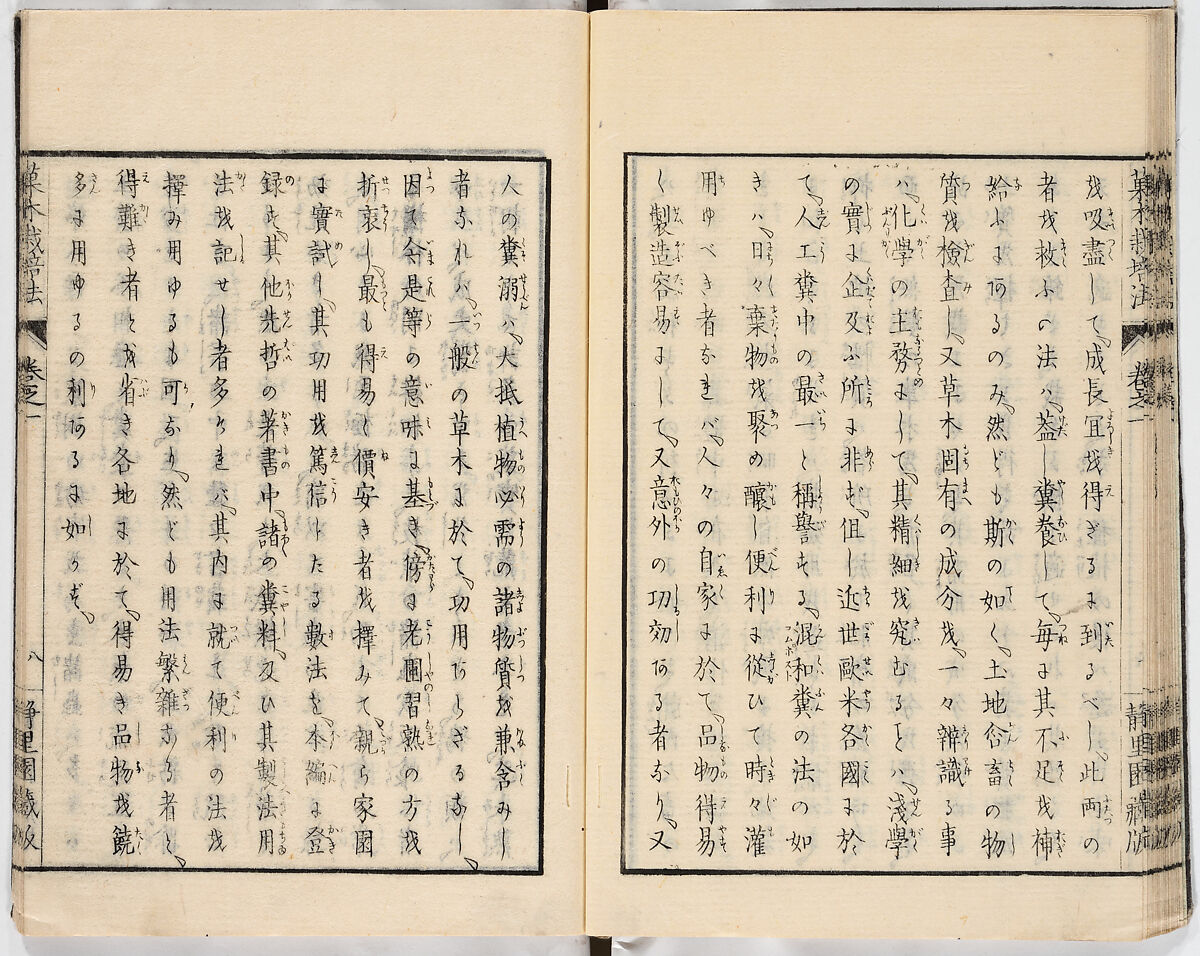 菓木栽培法 卷之一 靜里園藏版
を吸盡して、成長冝を得ざるに到るべし、此両の
者を救ふの法ハ、蓋し糞養して、毎に其不足を補
給ふにあるのみ、然ども斯の如く、土地含畜の物
質を検査し、又草木固有の成分を、一々辨識る事
ハ、化學の主務にして、其精細を究むることハ、淺學
の實に企及ぶ所に非ず、但し近世歐米各國に於
て、人工糞中の最一と稱譽する、混和糞の法の如
きハ、日々棄物を聚め釀し便利に從ひて時々灌
用ゆべき者なれバ、人々の自家に於て、品物得易
く製造容易にして、又意外の功効ある者なり、又
人の糞溺ハ、大抵植物必需の諸物質を兼含みし
者なれハ、一般の草木に於て、功用あらざるなし、
因て今是等の意味に基き、傍に老圃習熟の方を
折衷し、最も得易く價安き者を擇みて、親ら家園
に實試し、其功用を篤信けたる數法を本編に登
録す、其他先哲の著書中、諸の糞料、及ひ其製法用
法を記せし者多けれハ、其内に就て便利の法を
擇み用ゆるも可なり、然ども用法繁雜なる者と、
得難き者とを省き各地に於て、得易き品物を饒
多に用ゆるの利あるに如かず、
菓木栽培法 卷之一 八 靜里園藏版